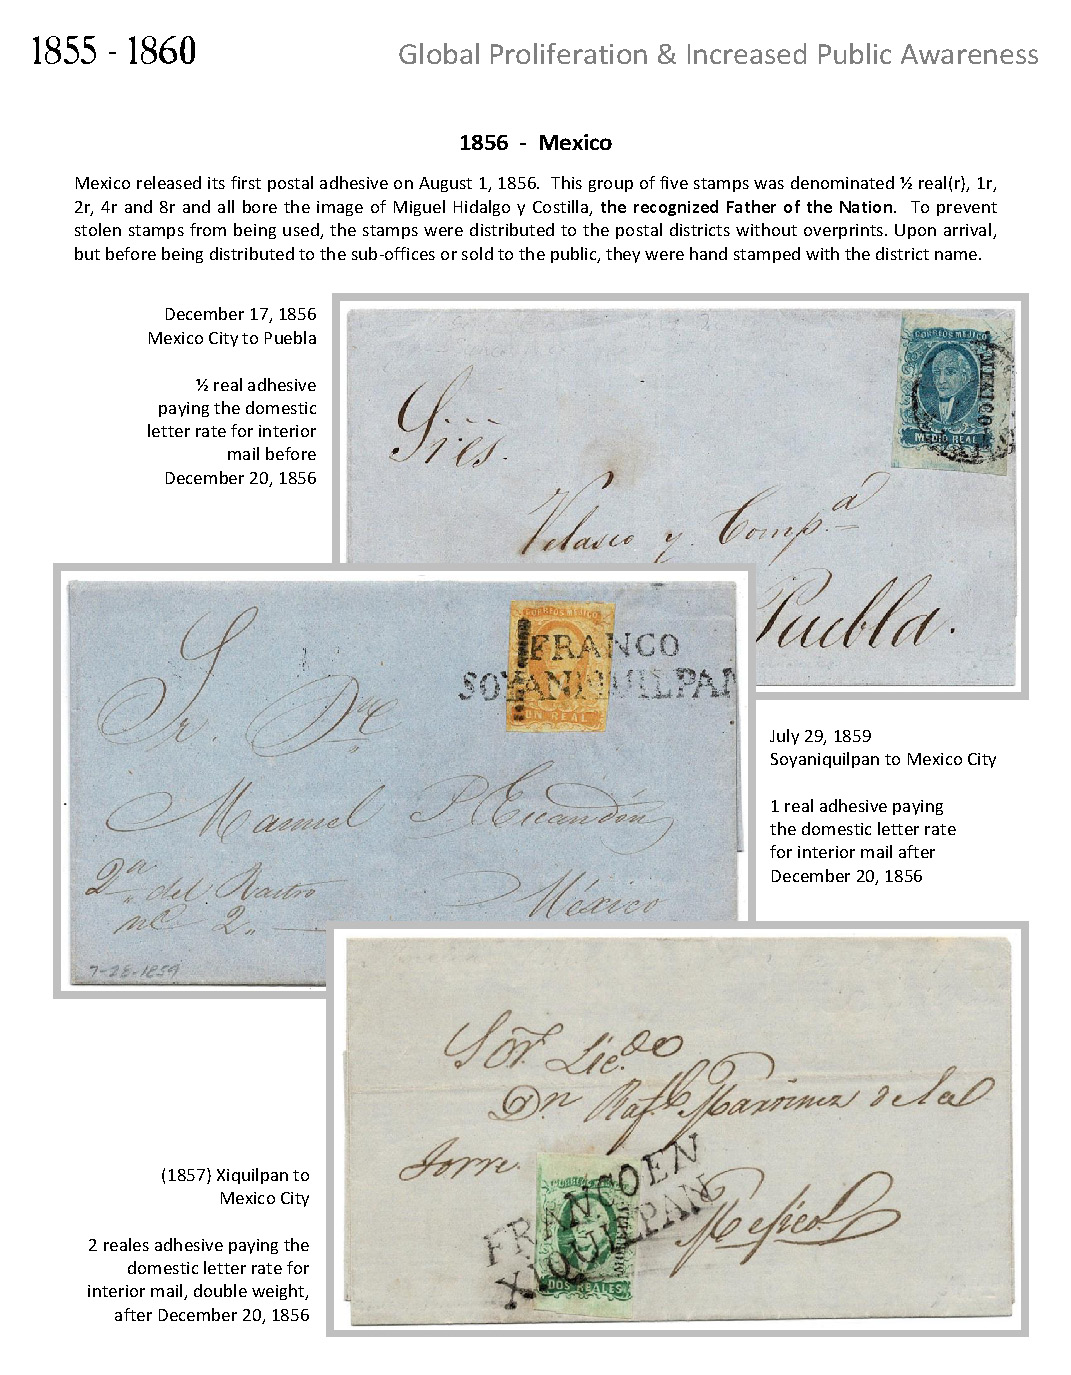 1855 - 1860
Global Proliferation & Increased Public Awareness
1856 - Mexico
Mexico released its first postal adhesive on August 1, 1856. This group of five stamps was denominated ½ real(r), 1r,
2r, 4r and 8r and all bore the image of Miguel Hidalgo y Costilla, the recognized Father of the Nation. To prevent
stolen stamps from being used, the stamps were distributed to the postal districts without overprints. Upon arrival,
but before being distributed to the sub-offices or sold to the public, they were hand stamped with the district name.
December 17, 1856
Mexico City to Puebla
½ real adhesive
paying the domestic
letter rate for interior
mail before
December 20, 1856
CORREOS MEJICO
MEXICO
MEDIO REAL
Velasco y Comp.a
Puebla.
CORREOS MEJICO
FRANCO
SOYANIQUILPAN
UN REAL
Sr. Dn
Manuel
2a del Rastro
México
7-28-1859
July 29, 1859
Soyaniquilpan to Mexico City
1 real adhesive paying
the domestic letter rate
for interior mail after
December 20, 1856
Sor. Lic.do
Dn Raf.l Martinez de la
Torre.
FRANCO EN
XIQUILPAN
DOS REALES
Mejico
(1857) Xiquilpan to
Mexico City
2 reales adhesive paying the
domestic letter rate for
interior mail, double weight,
after December 20, 1856